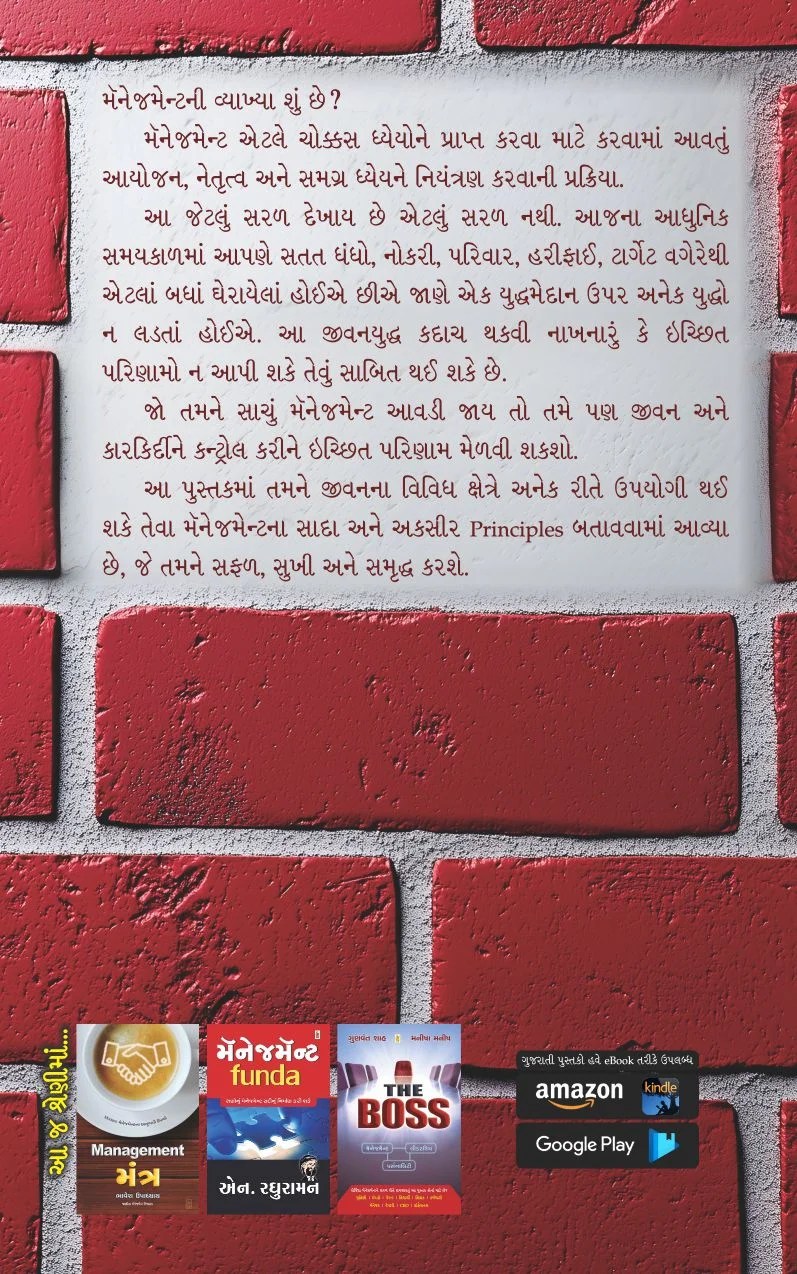 મૅનેજમેન્ટની વ્યાખ્યા શું છે?
મૅનેજમેન્ટ એટલે ચોક્કસ ધ્યેયોને પ્રાપ્ત કરવા માટે કરવામાં આવતું
આયોજન, નેતૃત્વ અને સમગ્ર ધ્યેયને નિયંત્રણ કરવાની પ્રક્રિયા.
આ જેટલું સરળ દેખાય છે એટલું સરળ નથી. આજના આધુનિક
સમયકાળમાં આપણે સતત ધંધો, નોકરી, પરિવાર, હરીફાઈ, ટાર્ગેટ વગેરેથી
એટલાં બધાં ઘેરાયેલાં હોઈએ છીએ જાણે એક યુદ્ધમેદાન ઉપર અનેક યુદ્ધો
ન લડતાં હોઈએ. આ જીવનયુદ્ધ કદાચ થકવી નાખનારું કે ઇચ્છિત
પરિણામો ન આપી શકે તેવું સાબિત થઈ શકે છે.
જો તમને સાચું મૅનેજમેન્ટ આવડી જાય તો તમે પણ જીવન અને
કારકિર્દીને કન્ટ્રોલ કરીને ઇચ્છિત પરિણામ મેળવી શકશો.
આ પુસ્તકમાં તમને જીવનના વિવિધ ક્ષેત્રે અનેક રીતે ઉપયોગી થઈ
શકે તેવા મૅનેજમેન્ટના સાદા અને અકસીર Principles બતાવવામાં આવ્યા
છે, જે તમને સફળ, સુખી અને સમૃદ્ધ કરશે.
આ જ શ્રેણીમાં...
Management
મંત્ર
ભાવેશ ઉપાધ્યાય
મૅનેજમૅન્ટ
funda
એન. રઘુરામન
ગુણવંત શાહ મનીષા મનીષ
THE
BOSS
મેનેજમેન્ટ લીડરશિપ
પર્સનાલિટી
ગુજરાતી પુસ્તકો હવે eBook તરીકે ઉપલબ્ધ
amazon kindle
Google Play